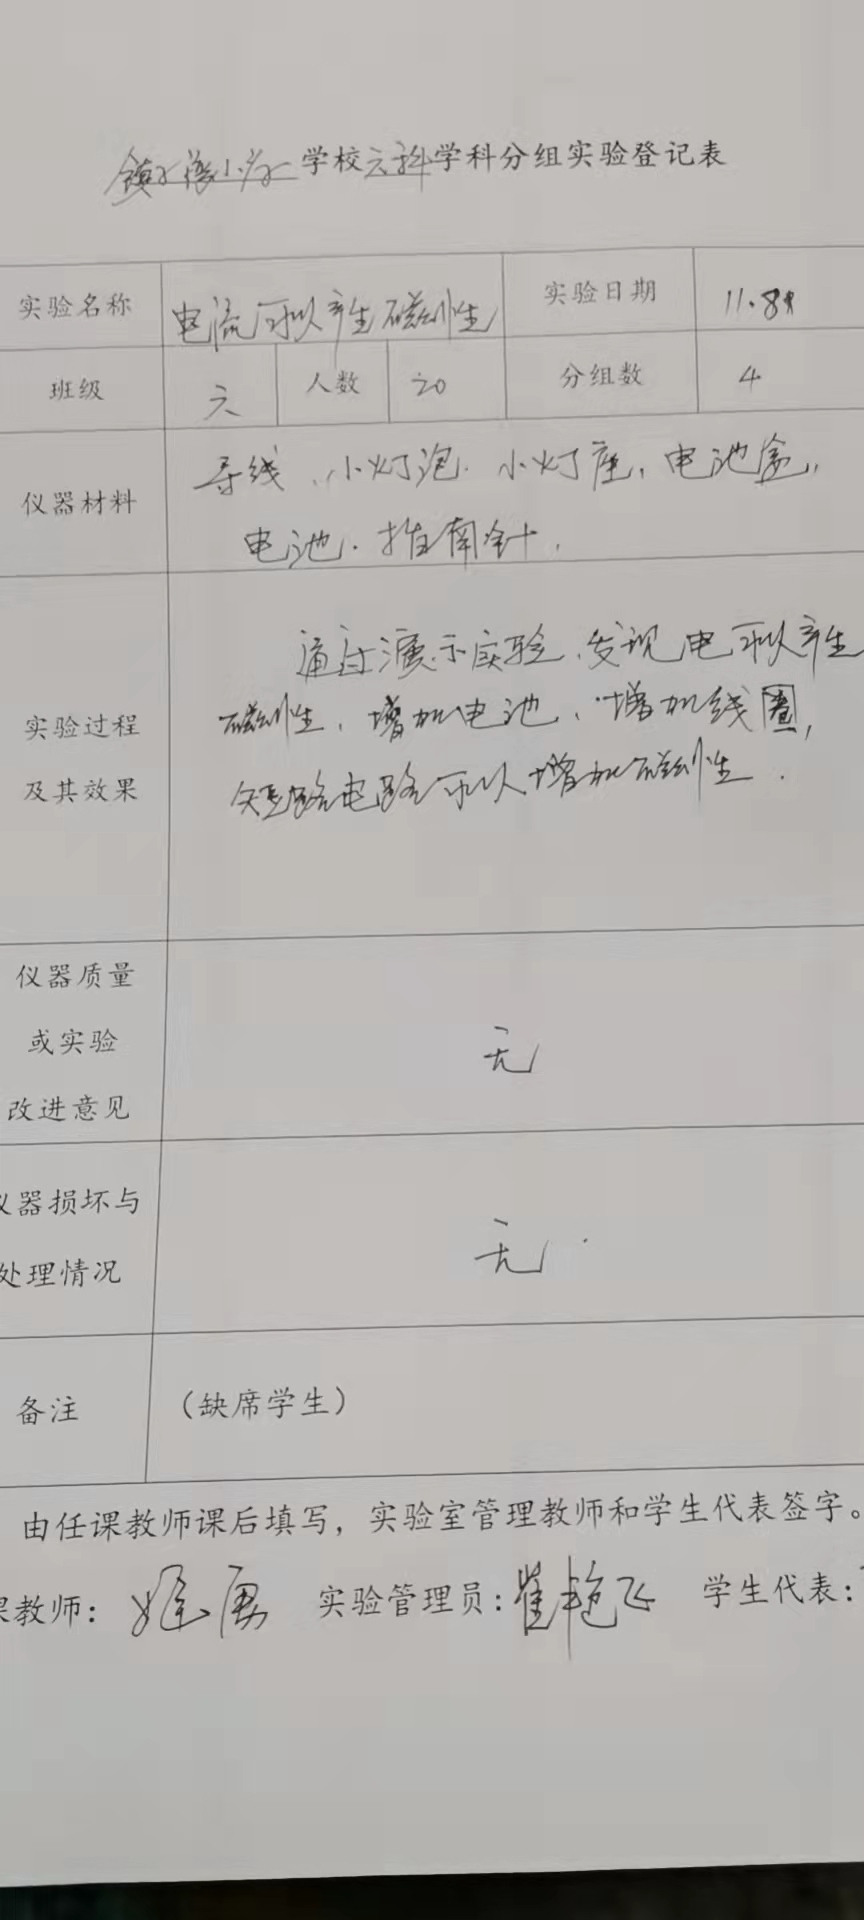 学校六科学科分组实验登记表
实验名称 电流可以产生磁性 实验日期 11.8
班级 六 人数 20 分组数 4
仪器材料
导线、小灯泡、小灯座、电池盒、
电池、指南针.
通过演示实验、发现电可以产生
实验过程 磁性、增加电池、增加线圈,
及其效果 短路电路可以增加磁性.
仪器质量
或实验 无
改进意见
仪器损坏与
处理情况 无.
备注 (缺席学生)
由任课教师课后填写，实验室管理教师和学生代表签字。
课教师: 实验管理员:崔艳飞 学生代表: